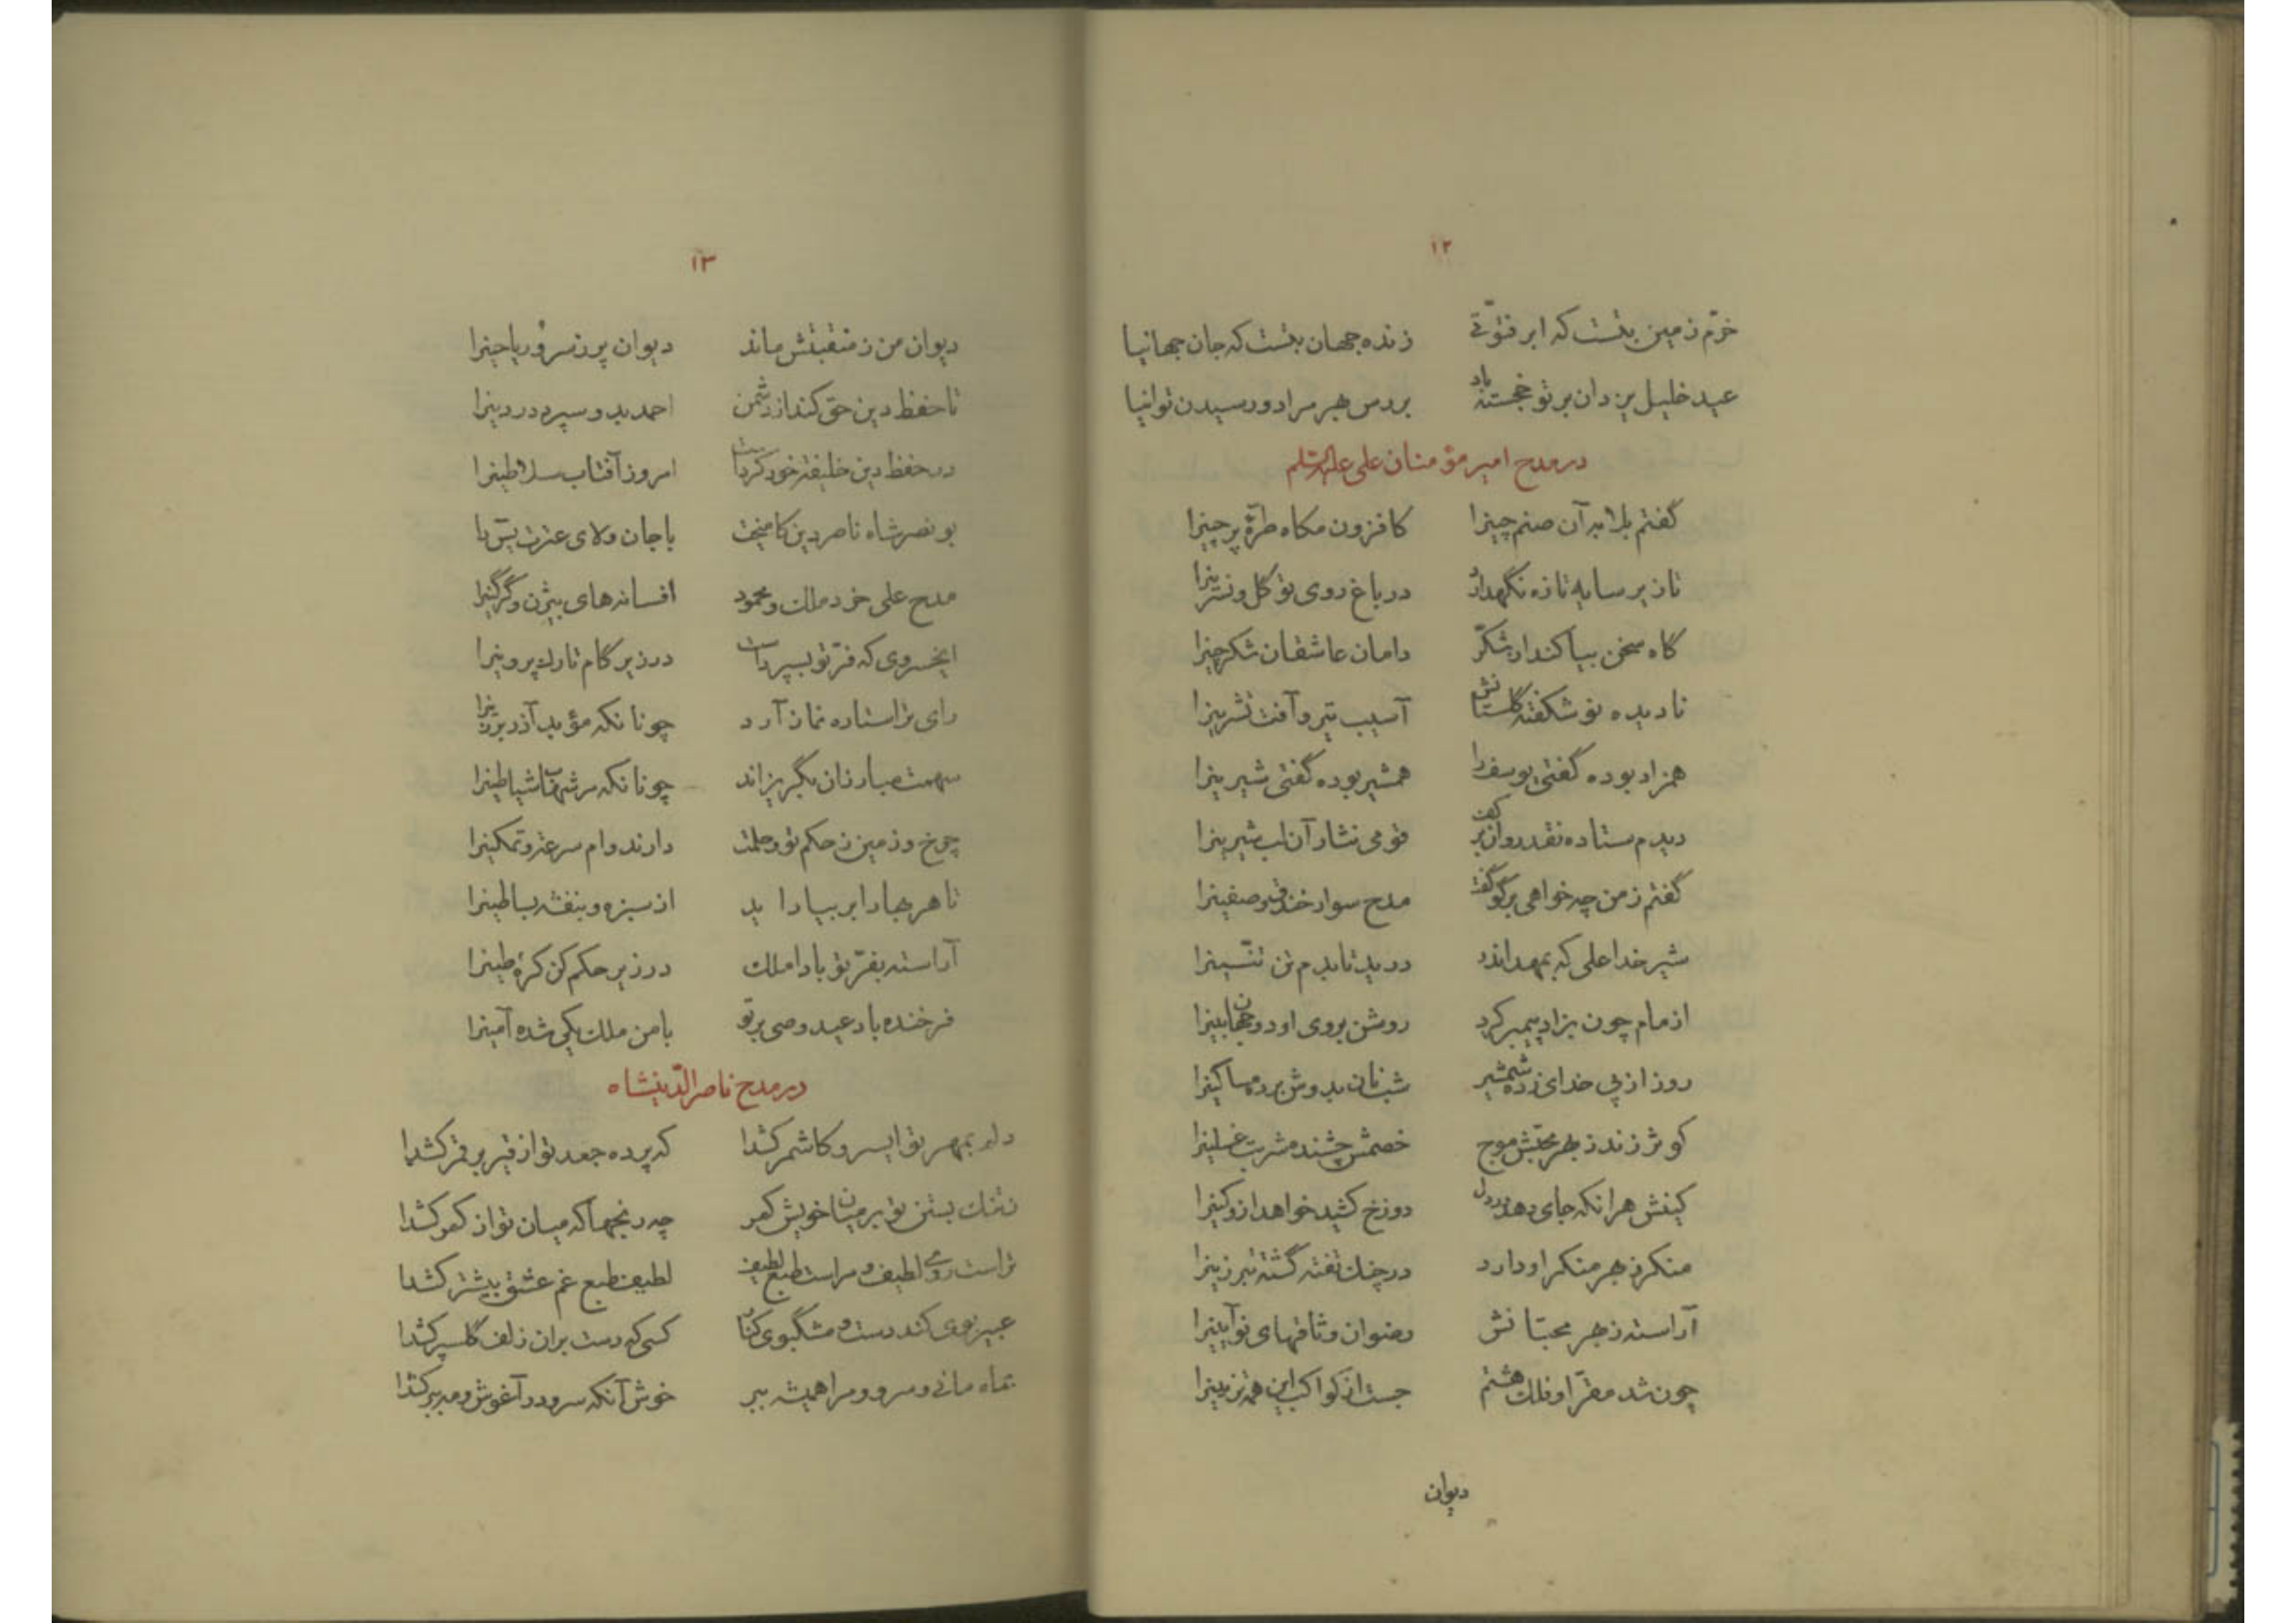 ۱۲
خرّم زمین بتست که ابر فتوّتی زنده جهان بتست که جان جهانیا
عید خلیل یزدان بر تو خجسته باد بر دس هر مراد و رسیدن توانیا
در مدح امیر مؤمنان علی علیه السلم
گفتم بلابه آن صنم چینرا کافزون مکاه طرّهٔ پرچینرا
تا زیر سایه تازه نگهدارد در باغ روی تو گل و نسرینرا
گاه سخن بیاکند از شکّر دامان عاشقان شکرچینرا
نادیده نو شکفته گلستانش آسیب تیر و آفت تشرینرا
همزاد بوده گفتی یوسف را همشیر بوده گفتی شیرینرا
دیدم ستاده نقد روان بر کف قومی نثار آن لب شیرینرا
گفتم ز من چه خواهی برگو گفت مدح سوار خندق و صفینرا
شیر خدا علی که بمهد اندر درید تا بدم تن تنّینرا
از مام چون بزاد پیمبر کرد روشن بروی او دو جهان بینرا
روز از پی خدای زده شمشیر شب نان بدوش برده مساکینرا
کوثر زند ز بهر محبّش موج خصمش چشند مشربت غسلینرا
کینش هر انکه جای دهد در دل دوزخ کشید خواهد ازو کینرا
منکر ز بهر منکر او دارد در چنک تفته گشته تبرزینرا
آراسته ز بهر محبّانش رضوان وثاقهای نو آیینرا
چون شد مقرّ او فلک هشتم جست از کواکب این همه تزیینرا
دیوان
۱۳
دیوان من ز منقبتش ماند دیوان پر ز سرو و ریاحینرا
تا حفظ دین حق کند از دشمن احمد بدو سپرد در دینرا
در حفظ دین خلیفهٔ خود کرداست امروز آفتاب سلاطینرا
بونصر شاه ناصر دین کامیخت با جان ولای عترت یس را
مدح علی خرد ملک و محمود افسانه‌های بیژن و گرگینرا
ایخسروی که فرّ تو بسپرداست در زیر گام تارک پروینرا
رای ترا ستاره نماز آرد چونانکه مؤبد آذر برزینرا
سهمت مبارزان بگریزاند چونانکه مر شهاب شیاطینرا
چرخ و زمین ز حکم تو و حلمت دارند وام سرعت و تمکینرا
تا هر بهار ابر بیاراید از سبزه و بنفشه بساطینرا
آراسته بفرّ تو بادا ملک در زیر حکم کن کرهٔ طینرا
فرخنده باد عید وصی بر تو با من ملک یکی شده آمینرا
در مدح ناصرالدّینشاه
دلم بمهر تو ایسرو کاشمر کشدا که پرده جعد تو از قیر بر قمر کشدا
ز تنک بستن تو بر میان خویش کمر چه رنجها که میان تو از کمر کشدا
تراست روی لطیف و مراست طبع لطیف لطیف طبع غم عشق بیشتر کشدا
عبیر بوی کند دست و مشگبوی کنار کسی که دست بران زلف گلسپر کشدا
بماه مانی و سرو و مرا همیشه ببر خوش آنکه سرو در آغوش و مه ببر کشدا